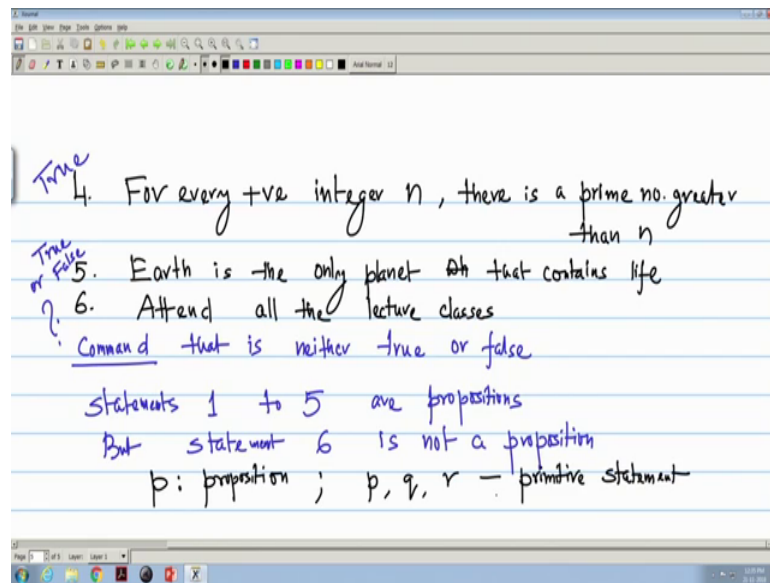 Journal
File Edit View Page Tools Options Help
Arial Normal 12
True
4. For every +ve integer n, there is a prime no. greater
than n
True
or False
5. Earth is the only planet that contains life
? 6. Attend all the lecture classes
Command that is neither true or false
statements 1 to 5 are propositions
But statement 6 is not a proposition
p: proposition ; p, q, r – primitive statement
Page 5 of 5 Layer: Layer 1